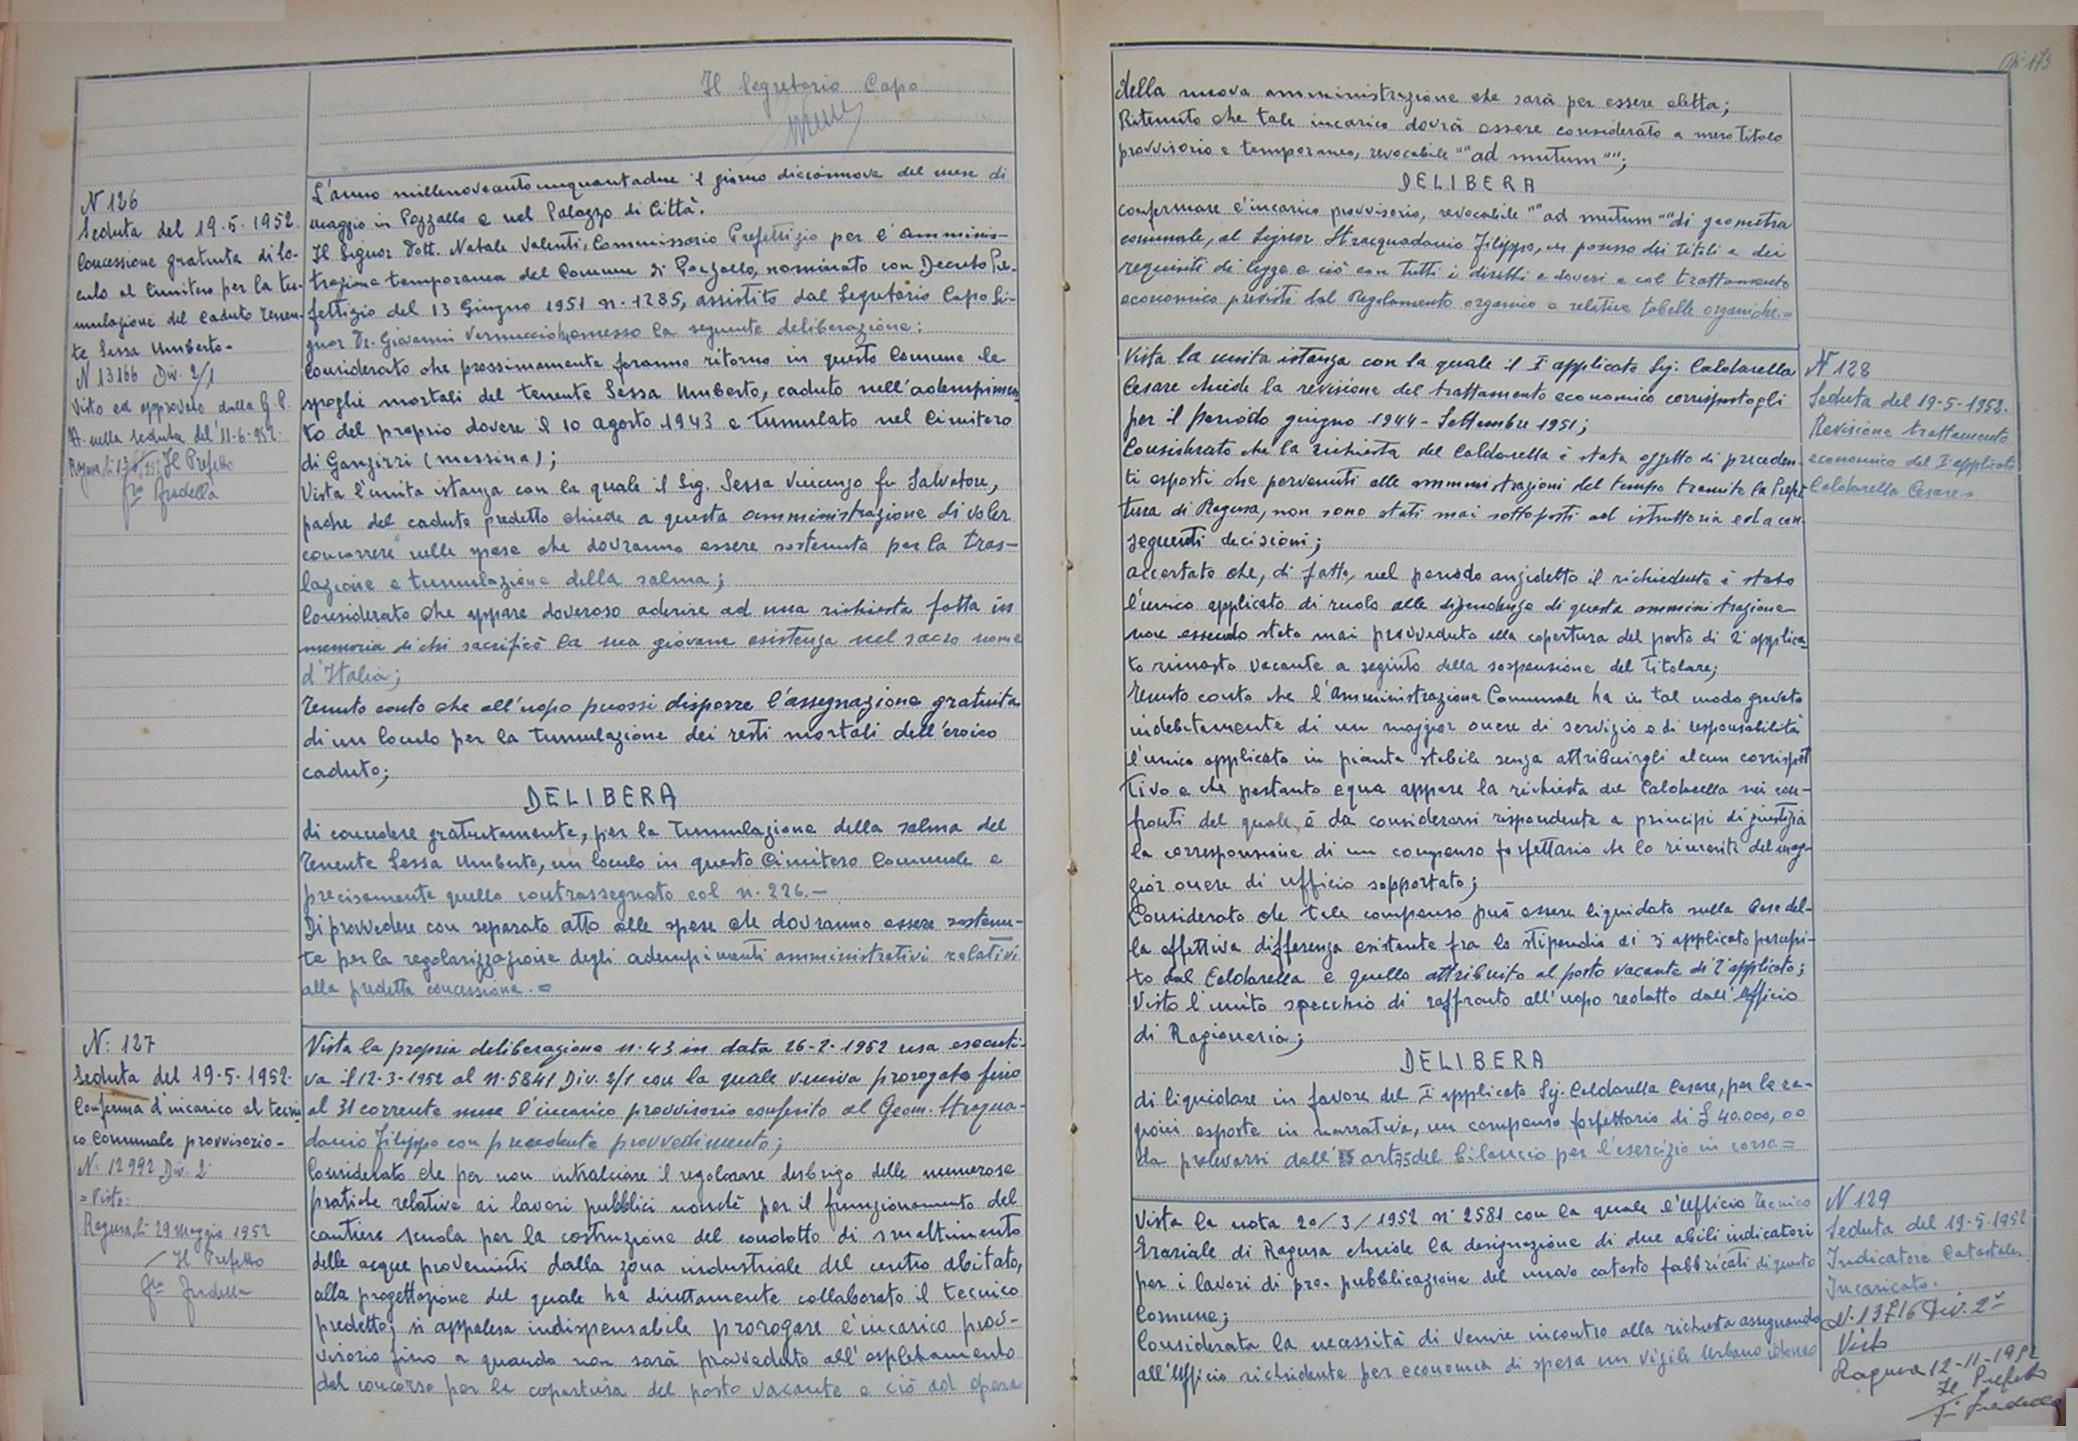 Il Segretario Capo
N 126
Seduta del 19-5-1952.
Concessione gratuita di lo-
culo al Cimitero per la tu-
mulazione del Caduto Tenen-
te Sessa Umberto-
N 13166 Div. 2/1
Visto ed approvato dalla G.P.
A. nella seduta del 11-6-952.
Ragusa, li Il Prefetto
L'anno millenovecentocinquantadue il giorno diciannove del mese di
maggio in Pozzallo e nel Palazzo di Città.
Il Signor Dott. Natale Valenti, Commissario Prefettizio per l'amminis-
trazione temporanea del Comune di Pozzallo, nominato con Decreto Pre-
fettizio del 13 Giugno 1951 n. 1285, assistito dal Segretario Capo Si-
gnor Dr. Giovanni ha emesso la seguente deliberazione:
Considerato che prossimamente faranno ritorno in questo Comune le
spoglie mortali del tenente Sessa Umberto, caduto nell'adempimen
to del proprio dovere il 10 agosto 1943 e tumulato nel Cimitero
di Ganzirri (Messina);
Vista l'unita istanza con la quale il Sig. Sessa Vincenzo fu Salvatore,
padre del caduto predetto chiede a questa amministrazione di voler
concorrere nelle spese che dovranno essere sostenute per la tras-
lazione e tumulazione della salma;
Considerato che appare doveroso aderire ad una richiesta fatta in
memoria di chi sacrificò la sua giovane esistenza nel sacro nome
d'Italia;
Tenuto conto che all'uopo puossi disporre l'assegnazione gratuita
di un loculo per la tumulazione dei resti mortali dell'eroico
caduto;
DELIBERA
di concedere gratuitamente, per la tumulazione della salma del
Tenente Sessa Umberto, un loculo in questo Cimitero Comunale e
precisamente quello contrassegnato col n. 226.-
Di provvedere con separato atto alle spese che dovranno essere sostenu-
te per la regolarizzazione degli adempimenti amministrativi relativi
alla predetta concessione.=
N: 127
Seduta del 19-5-1952.
Conferma d'incarico al tecni
co Comunale provvisorio-
N. 12992 Div. 2
=Visto:
Ragusa, li 29 Maggio 1952
Il Prefetto
Vista la propria deliberazione n. 43 in data 26-2-1952 resa esecuti-
va il 12-3-1952 al N. 5841 Div. 2/1 con la quale veniva prorogato fino
al 31 corrente mese l'incarico provvisorio conferito al Geom. Stracqua-
danio Filippo con precedente provvedimento;
Considerato che per non intralciare il regolare disbrigo delle numerose
pratiche relative ai lavori pubblici nonchè per il funzionamento del
cantiere scuola per la costruzione del condotto di smaltimento
delle acque provenienti dalla zona industriale del centro abitato,
alla progettazione del quale ha direttamente collaborato il tecnico
predetto, si appalesa indispensabile prorogare l'incarico prov-
visorio fino a quando non sarà provveduto all'espletamento
del concorso per la copertura del posto vacante e ciò ad opera
173
della nuova amministrazione che sarà per essere eletta;
Ritenuto che tale incarico dovrà essere considerato a mero titolo
provvisorio e temporaneo, revocabile ""ad mutum"";
DELIBERA
confermare l'incarico provvisorio, revocabile ""ad mutum"" di geometra
comunale, al Signor Stracquadanio Filippo, in possesso dei titoli e dei
requisiti di legge e ciò con tutti i diritti e doveri e col trattamento
economico previsti dal Regolamento organico e relative tabelle organiche.=
Vista la unita istanza con la quale il I applicato Sig. Caldarella
Cesare chiede la revisione del trattamento economico corrispostogli
per il periodo giugno 1944 - Settembre 1951;
Considerato che la richiesta del Caldarella è stata oggetto di preceden-
ti esposti che pervenuti alle amministrazioni del tempo tramite la Prefet
tura di Ragusa, non sono stati mai sottoposti ad istruttoria ed a con-
seguenti decisioni;
Accertato che, di fatto, nel periodo anzidetto il richiedente è stato
l'unico applicato di ruolo alle dipendenze di questa amministrazione
non essendo stato mai provveduto alla copertura del posto di 2 applica-
to rimasto vacante a seguito della sospensione del titolare;
Tenuto conto che l'Amministrazione Comunale ha in tal modo gravato
indebitamente di un maggior onere di servizio e di responsabilità
l'unico applicato in pianta stabile senza attribuirgli alcun corrispet
tivo e che pertanto equa appare la richiesta del Caldarella nei con-
fronti del quale, è da considerarsi rispondente a principi di giustizia
la corresponsione di un compenso forfettario che lo rimeriti del mag-
gior onere di ufficio sopportato;
Considerato che tale compenso può essere liquidato sulla base del-
la effettiva differenza esistente fra lo stipendio di 3 applicato percepi-
to dal Caldarella e quello attribuito al posto vacante di 2 applicato;
Visto l'unito specchio di raffronto all'uopo redatto dall'Ufficio
di Ragioneria;
DELIBERA
di liquidare in favore del I applicato Sig. Caldarella Cesare, per le ra-
gioni esposte in narrativa, un compenso forfettario di £ 40.000,00
da prelevarsi dall' art. 75 del bilancio per l'esercizio in corso=
N 128
Seduta del 19-5-1952.
Revisione trattamento
economico del I applicato
Caldarella Cesare=
Vista la nota 20/3/1952 N. 2581 con la quale l'Ufficio Tecnico
Erariale di Ragusa chiede la designazione di due abili indicatori
per i lavori di pre-pubblicazione del nuovo catasto fabbricati di questo
Comune;
Considerata la necessità di venire incontro alla richiesta assegnando
all'Ufficio richiedente per economia di spesa un Vigile Urbano idoneo
N 129
Seduta del 19-5-1952
Indicatore Catastale
Incaricato.
N. 13716 Div. 2ª
Visto
Ragusa 12-11-1952
Il Prefetto